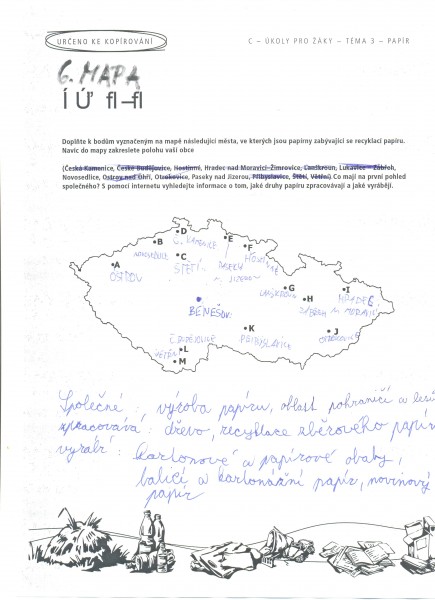 URČENO KE KOPÍROVÁNÍ
C – ÚKOLY PRO ŽÁKY – TÉMA 3 – PAPÍR
6. MAPA
Í Ú' fl–fl
Doplňte k bodům vyznačeným na mapě následující města, ve kterých jsou papírny zabývající se recyklací papíru.
Navíc do mapy zakreslete polohu vaší obce
(Česká Kamenice, České Budějovice, Hostinné, Hradec nad Moravicí-Žimrovice, Lanškroun, Lukavice – Zábřeh,
Novosedlice, Ostrov nad Ohří, Otrokovice, Paseky nad Jizerou, Přibyslavice, Štětí, Větřní) Co mají na první pohled
společného? S pomocí internetu vyhledejte informace o tom, jaké druhy papíru zpracovávají a jaké vyrábějí.
D
Č. KAMENICE
B
NOVOSEDLICE
E
F
HOSTINNÉ
C
ŠTĚTÍ
PASEKY
N. JIZEROU
A
OSTROV
G
LANŠKROUN
H
ZÁBŘEH
I
HRADEC
N. MORAVICÍ
BENEŠOV
K
PŘIBYSLAVICE
J
OTROKOVICE
Č. BUDĚJOVICE
L
VĚTŘNÍ
M
Společné: výroba papíru, oblast pohraničí a
zpracovává: dřevo, recyklace sběrového papír
vyrábí: kartonové a papírové obaly,
balicí a kartonážní papír, novinový
papír